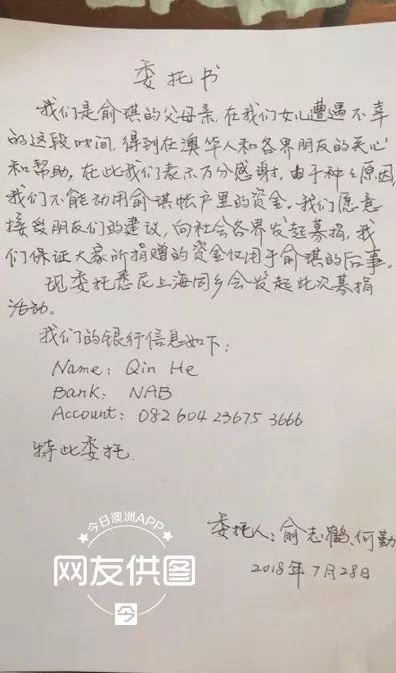 委托书
我们是俞琪的父母亲,在我们女儿遭遇不幸
的这段时间,得到在澳华人和各界朋友的关心
和帮助,在此我们表示万分感谢。由于种々原因,
我们不能动用俞琪帐户里的资金。我们愿意
接受朋友们的建议,向社会各界发起募捐,我
们保证大家所捐赠的资金仅用于俞琪的后事。
现委托悉尼上海同乡会发起此次募捐
活动。
我们的银行信息如下:
Name: Qin He
Bank: NAB
Account: 082 604 23675 3666
特此委托.
委托人:俞志鹤、何勤
2018年7月28日
今日澳洲APP
网友供图
今